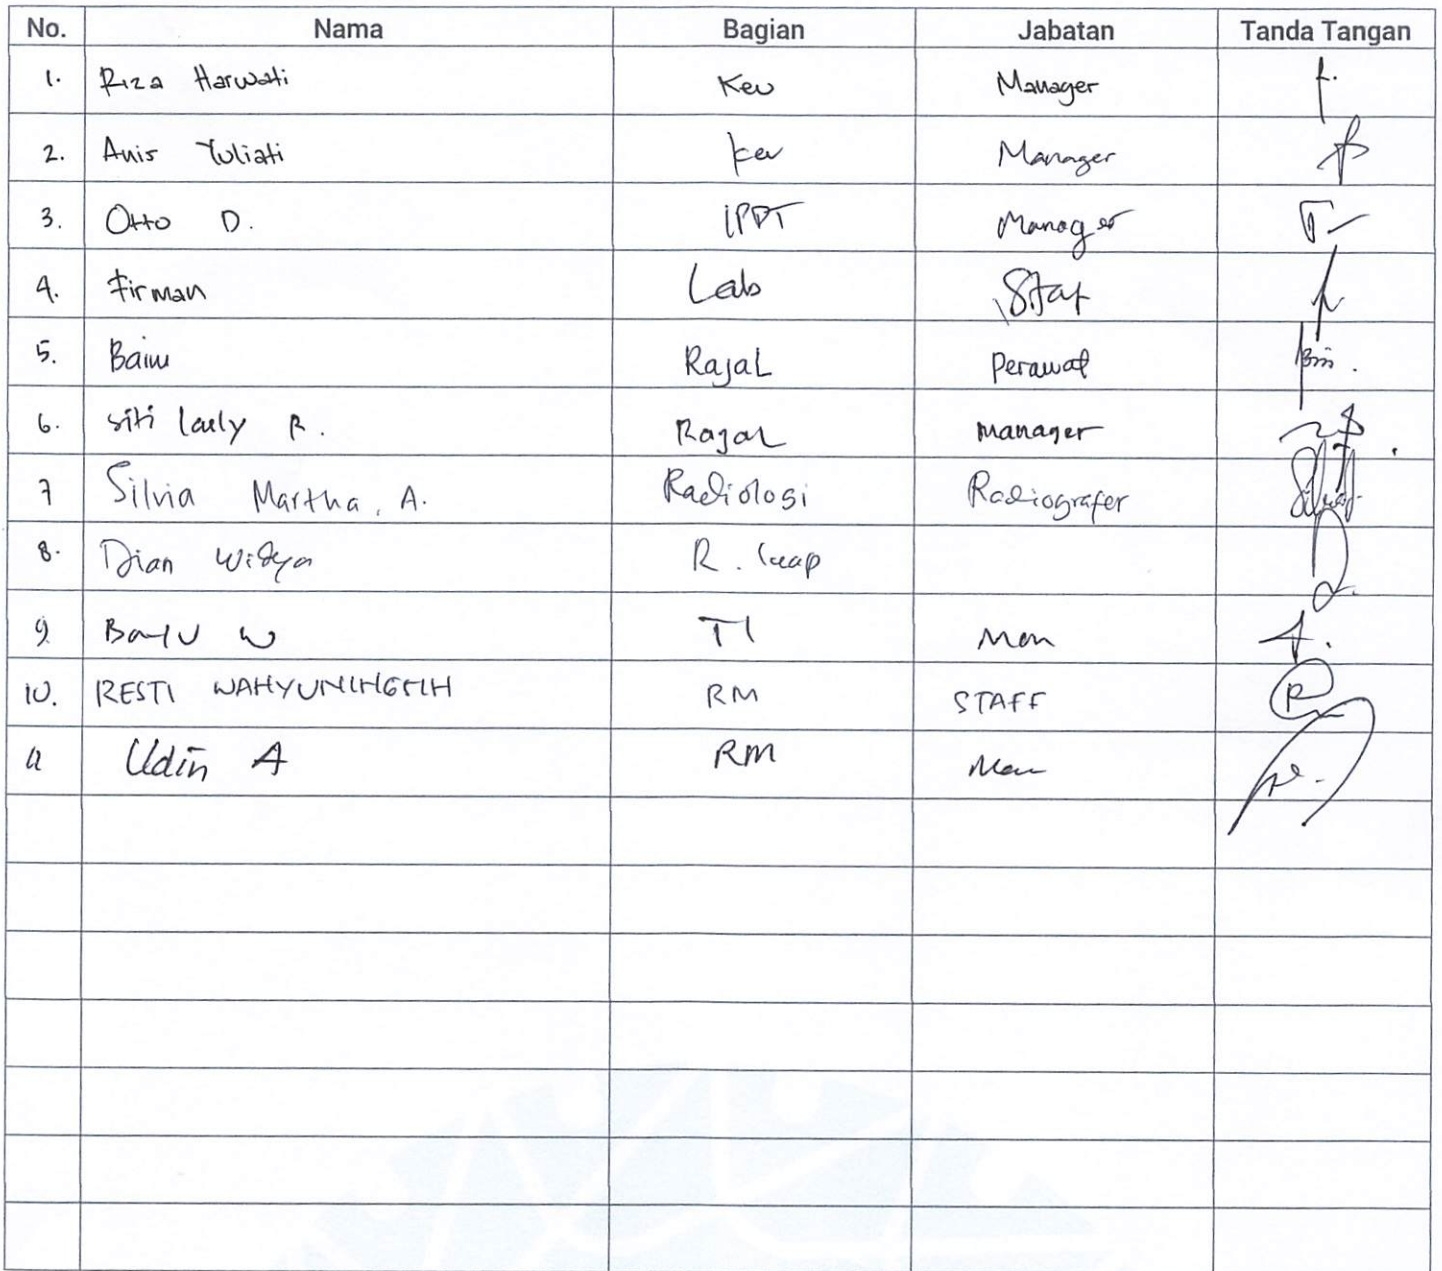 No. Nama Bagian Jabatan Tanda Tangan
1. Riza Harwati Keu Manager
2. Anis Yuliati Keu Manager
3. Otto D. IPPT Manager
4. Firman Lab Staf
5. Baim Rajal Perawat
6. Siti Laily R. Rajal Manager
7 Silvia Martha. A. Radiologi Radiografer
8. Dian Widya R.
9 Bayu W TI Man
10. RESTI WAHYUNINGSIH RM STAFF
11 Udin A RM Man